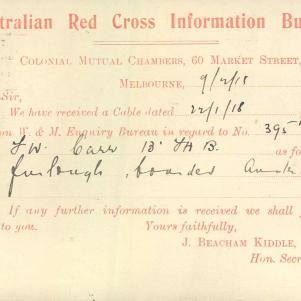 tralian Red Cross Information Bu
Colonial Mutual Chambers, 60 Market Street,
Melbourne, 9/2/18
Sir,
We have received a Cable dated 22/1/18
on W. & M. Enquiry Bureau in regard to No. 395
as fo
furlough, boarded
If any further information is received we shall
to you. Yours faithfully,
J. Beacham Kiddle,
Hon. Secr